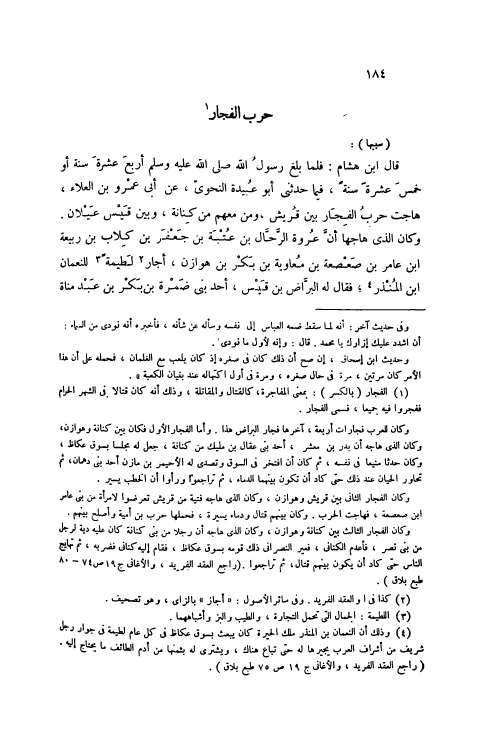 ١٨٤
حرب الفجار١
(سببها) :
قال ابن هشام : فلما بلغ رسولُ الله صلى الله عليه وسلم أربعَ عشرةَ سنة أو
خمسَ عشرةَ سنةً ، فيما حدثنى أبو عُبيدة النحوىّ ، عن أبى عمْرو بن العلاء ،
هاجت حربُ الفِجار بين قُريش ، ومن معهم من كِنانة ، وبين قَيْس عَيْلان .
وكان الذى هاجها أنَّ عُروة الرَّحَّال بن عُتْبة بن جَعْفر بن كِلاب بن ربيعة
ابن عامر بن صَعْصعة بن مُعاوية بن بَكْر بن هوازن ، أجار٢ لَطيمة٣ً للنعمان
ابن المُنْذر٤ ؛ فقال له البرَّاض بن قَيْس ، أحد بنى ضَمْرة بن بَكْر بن عَبْد مناة
وفى حديث آخر : أنه لما سقط ضمه العباس إلى نفسه وسأله عن شأنه ، فأخبره أنه نودى من السماء :
أن اشدد عليك إزارك يا محمد . قال : وإنه لأول ما نودى .
وحديث ابن إسحاق ، إن صح أن ذلك كان فى صغره إذ كان يلعب مع الغلمان ، فحمله على أن هذا
الأمر كان مرتين ، مرة فى حال صغره ، ومرة فى أول اكتهاله عند بنيان الكعبة » .
(١) الفجار (بالكسر) : بمعنى المفاجرة ، كالقتال والمقاتلة ، وذلك أنه كان قتالا فى الشهر الحرام
ففجروا فيه جميعا ، فسمى الفجار .
وكان للعرب فجارات أربعة ، آخرها فجار البراض هذا . وأما الفجار الأول فكان بين كنانة وهوازن ،
وكان الذى هاجه أن بدر بن معشر ، أحد بنى عقال بن مليك من كنانة ، جعل له مجلسا بسوق عكاظ ،
وكان حدثا منيعا فى نفسه ، ثم كان أن افتخر فى السوق وتصدى له الأحيمر بن مازن أحد بنى دهمان ، ثم
تحاور الحيان عند ذلك حتى كاد أن تكون بينهما الدماء ، ثم تراجعوا ورأوا أن الخطب يسير .
وكان الفجار الثانى بين قريش وهوازن ، وكان الذى هاجه فتية من قريش تعرضوا لامرأة من بنى عامر
ابن صعصعة ، فهاجت الحرب . وكان بينهم قتال ودماء يسيرة ، فحملها حرب بن أمية وأصلح بينهم .
وكان الفجار الثالث بين كنانة وهوازن ، وكان الذى هاجه أن رجلا من بنى كنانة كان عليه دية لرجل
من بنى نصر ، فأعدم الكنانى ، فعير النصرانى ذلك قومه بسوق عكاظ ، فقام إليه كنانى فضربه ، ثم تهايج
الناس حتى كاد أن يكون بينهم قتال ، ثم تراجعوا . (راجع العقد الفريد ، والأغانى ج ١٩ ص ٧٤ – ٨٠
طبع بلاق ) .
(٢) كذا فى ا والعقد الفريد . وفى سائر الأصول : « أجاز » بالزاى ، وهو تصحيف .
(٣) اللطيمة : الجمال التى تحمل التجارة ، والطيب والبز وأشباههما .
(٤) وذلك أن النعمان بن المنذر ملك الحيرة كان يبعث بسوق عكاظ فى كل عام لطيمة فى جوار رجل
شريف من أشراف العرب يجيرها له حتى تباع هناك ، ويشترى له بثمنها من أدم الطائف ما يحتاج إليه .
( راجع العقد الفريد ، والأغانى ج ١٩ ص ٧٥ طبع بلاق ) .